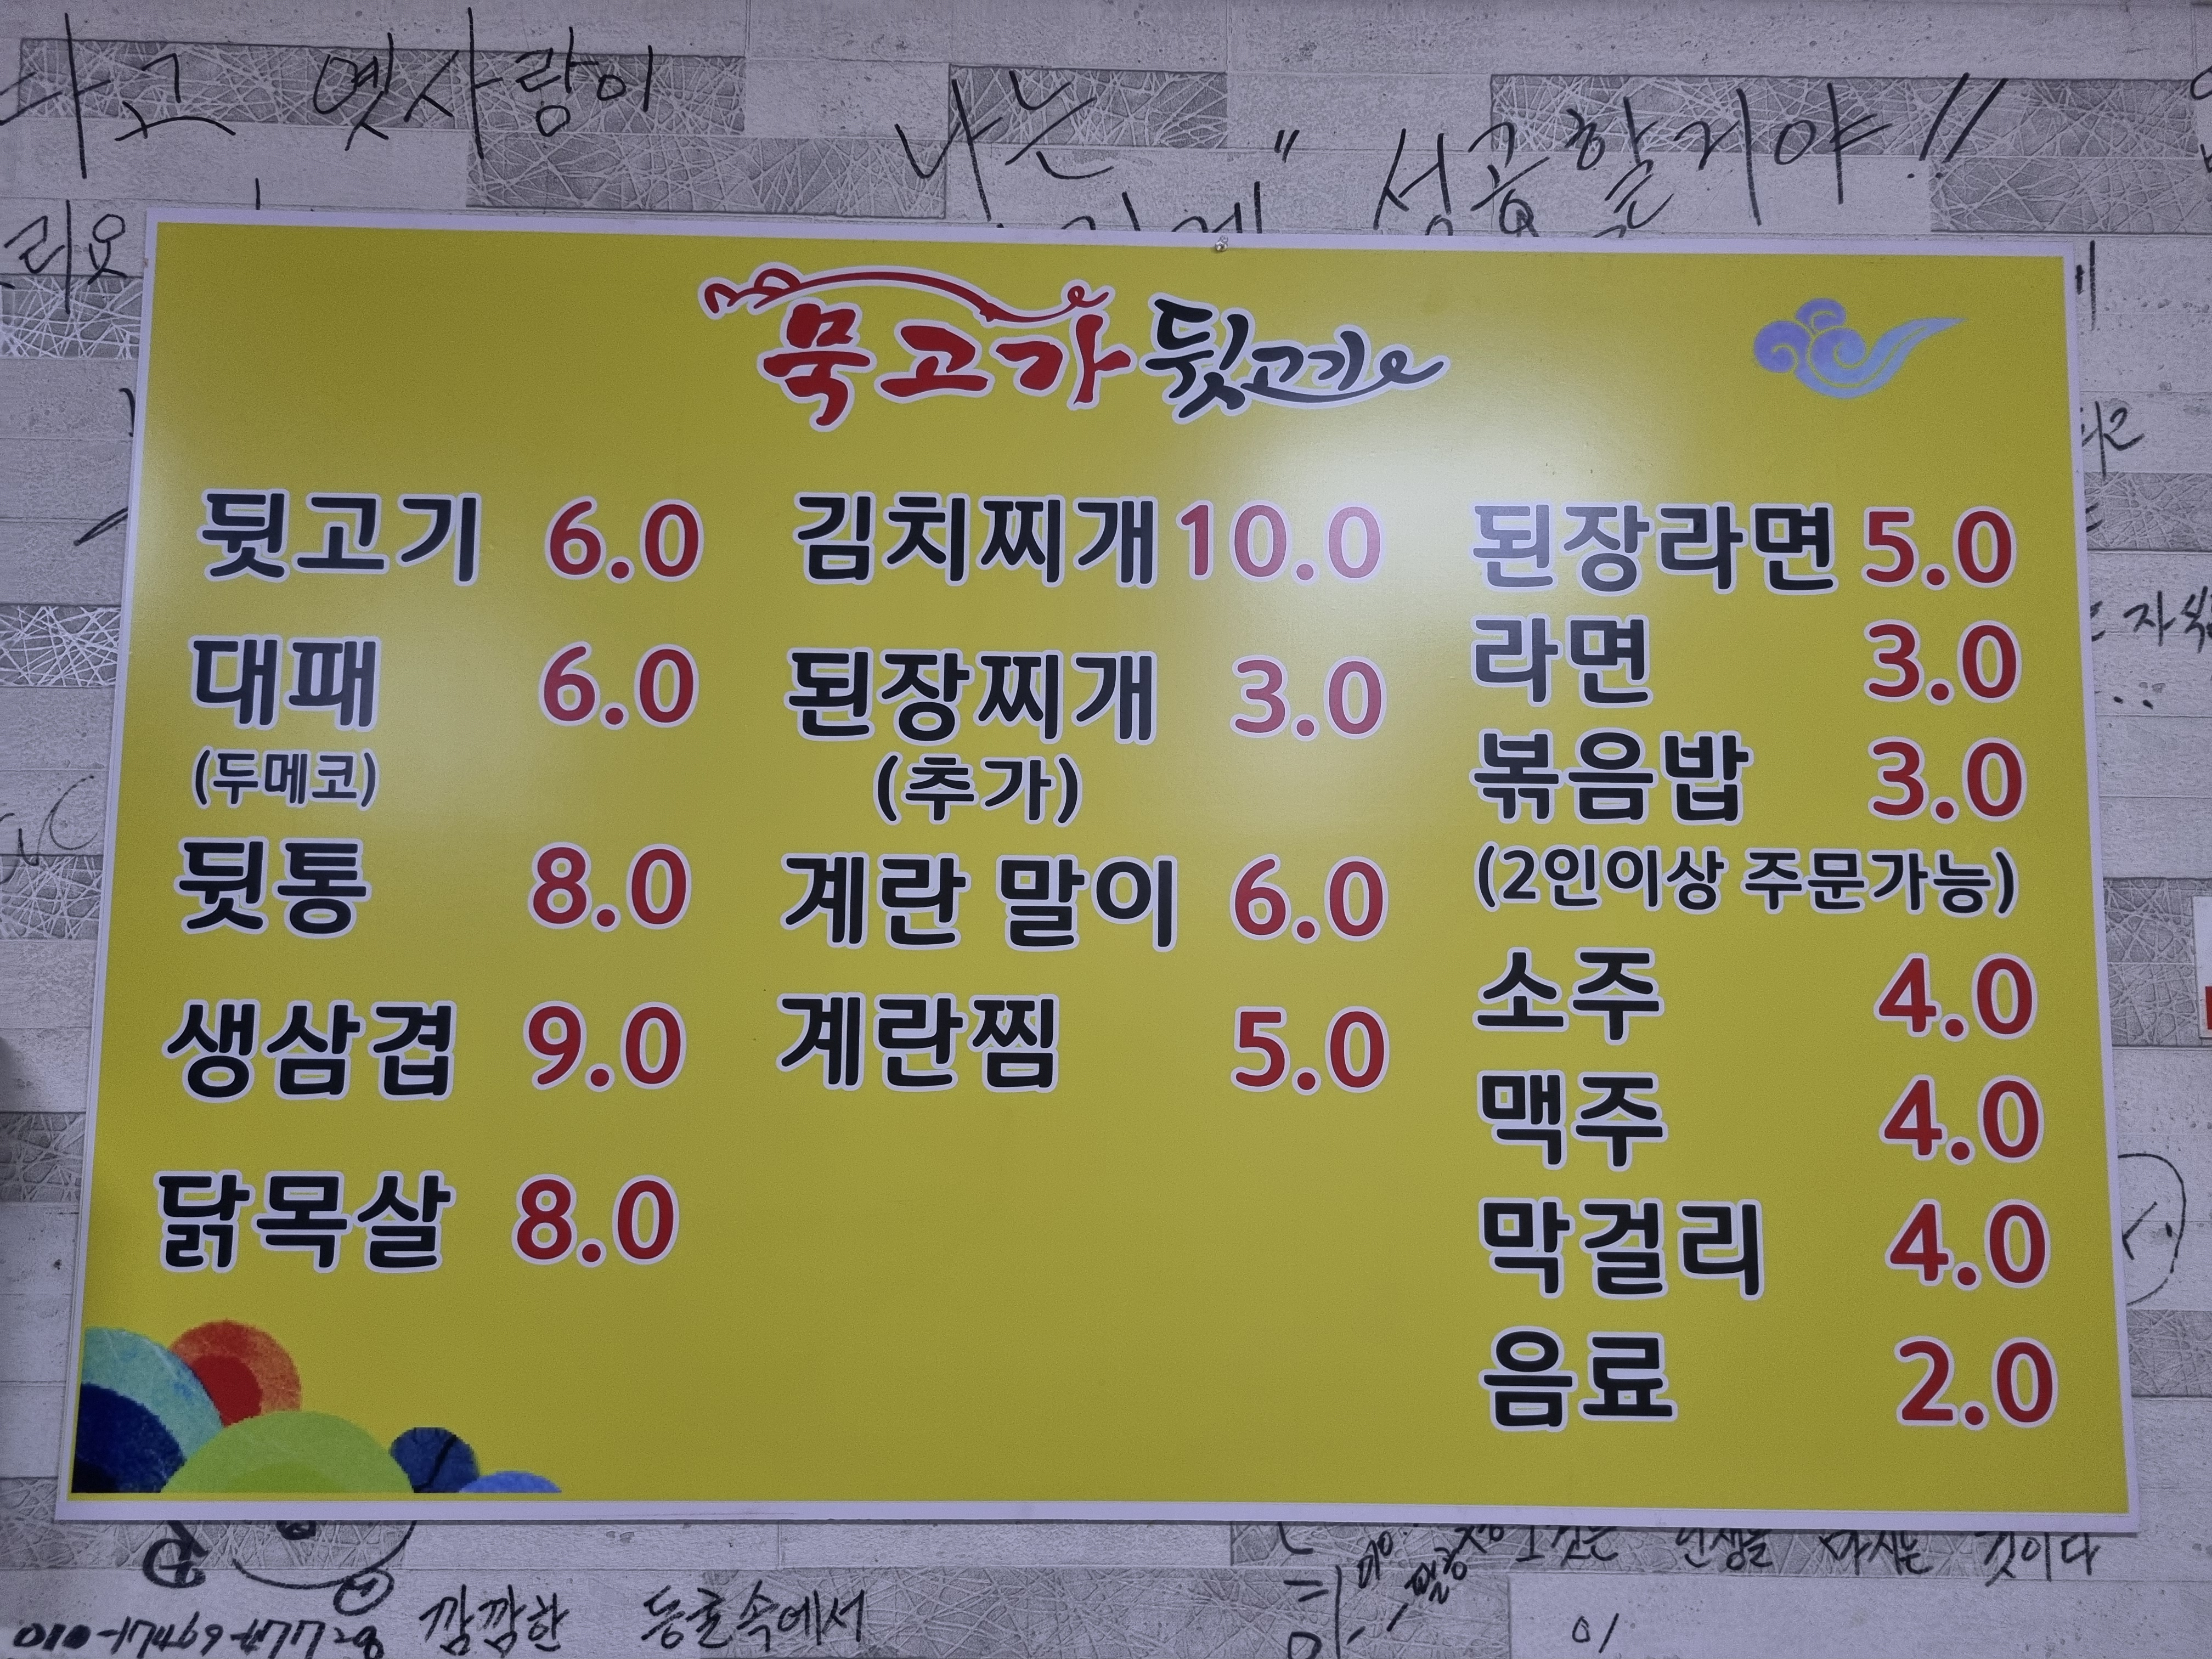 다고 옛사랑이
나는
성공할거야!!
리요
묵고가 뒷고기
뒷고기 6.0
대패 6.0
(두메코)
뒷통 8.0
생삼겹 9.0
닭목살 8.0
김치찌개 10.0
된장찌개 3.0
(추가)
계란 말이 6.0
계란찜 5.0
된장라면 5.0
라면 3.0
볶음밥 3.0
(2인이상 주문가능)
소주 4.0
맥주 4.0
막걸리 4.0
음료 2.0
인생을 마시는 것이다
깜깜한 동굴속에서